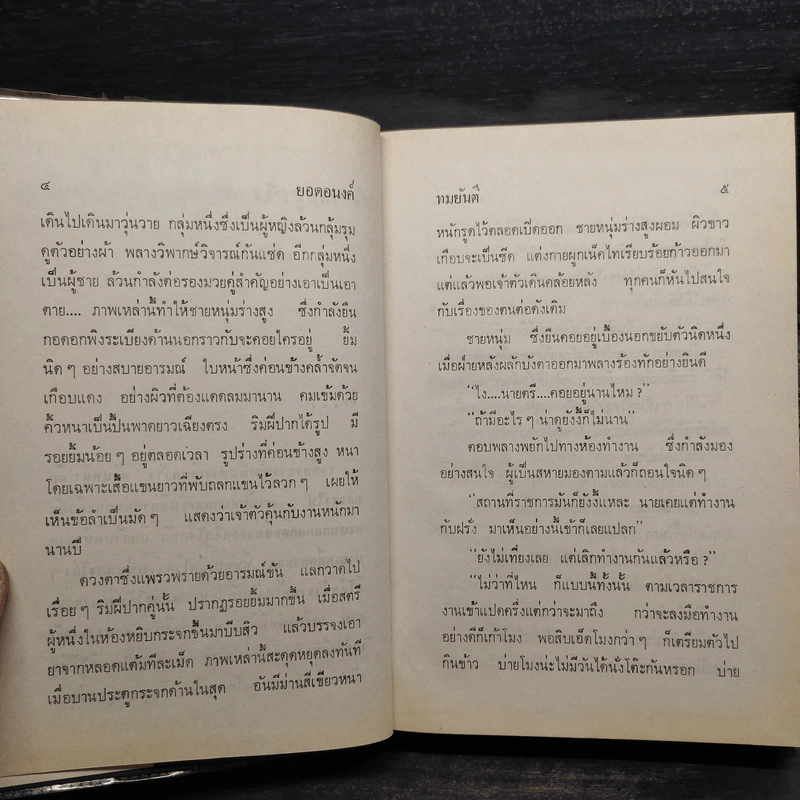 ๔ ยอดอนงค์
เดินไปเดินมาวุ่นวาย กลุ่มหนึ่งซึ่งเป็นผู้หญิงล้วนกลุ้มรุม
ดูตัวอย่างผ้า พลางวิพากษ์วิจารณ์กันแซ่ด อีกกลุ่มหนึ่ง
เป็นผู้ชาย ล้วนกำลังต่อรองมวยคู่สำคัญอย่างเอาเป็นเอา
ตาย.... ภาพเหล่านี้ทำให้ชายหนุ่มร่างสูง ซึ่งกำลังยืน
กอดอกพิงระเบียงด้านนอกราวกับจะคอยใครอยู่ ยิ้ม
นิดๆ อย่างสบายอารมณ์ ใบหน้าซึ่งค่อนข้างคล้ำจัดจน
เกือบแดง อย่างผิวที่ต้องแดดลมมานาน คมเข้มด้วย
คิ้วหนาเป็นปื้นพาดยาวเฉียงตรง ริมฝีปากได้รูป มี
รอยยิ้มน้อยๆ อยู่ตลอดเวลา รูปร่างที่ค่อนข้างสูง หนา
โดยเฉพาะเสื้อแขนยาวที่พับถลกแขนไว้ลวกๆ เผยให้
เห็นข้อลำเป็นมัดๆ แสดงว่าเจ้าตัวคุ้นกับงานหนักมา
นานปี
ดวงตาซึ่งแพรวพรายด้วยอารมณ์ขัน แลกวาดไป
เรื่อยๆ ริมฝีปากคู่นั้น ปรากฏรอยยิ้มมากขึ้น เมื่อสตรี
ผู้หนึ่งในห้องหยิบกระจกขึ้นมาบีบสิว แล้วบรรจงเอา
ยาจากหลอดแต้มทีละเม็ด ภาพเหล่านี้สะดุดหยุดลงทันที
เมื่อบานประตูกระจกด้านในสุด อันมีม่านสีเขียวหนา
ทมยันตี ๕
หนักรูดไว้ตลอดเปิดออก ชายหนุ่มร่างสูงผอม ผิวขาว
เกือบจะเป็นซีด แต่งกายผูกเน็คไทเรียบร้อยก้าวออกมา
แต่แล้วพอเจ้าตัวเดินคล้อยหลัง ทุกคนก็หันไปสนใจ
กับเรื่องของตนต่อดังเดิม
ชายหนุ่ม ซึ่งยืนคอยอยู่เบื้องนอกขยับตัวนิดหนึ่ง
เมื่อฝ่ายหลังผลักบังตาออกมาพลางร้องทักอย่างยินดี
“ไง....นายตรี....คอยอยู่นานไหม ?”
“ถ้ามีอะไรๆ น่าดูยังงี้ก็ไม่นาน”
ตอบพลางพยักไปทางห้องทำงาน ซึ่งกำลังมอง
อย่างสนใจ ผู้เป็นสหายมองตามแล้วก็ถอนใจนิดๆ
“สถานที่ราชการมันก็ยังงี้แหละ นายเคยแต่ทำงาน
กับฝรั่ง มาเห็นอย่างนี้เข้าก็เลยแปลก”
“ยังไม่เที่ยงเลย แต่เลิกทำงานกันแล้วหรือ ?”
“ไม่ว่าที่ไหน ก็แบบนี้ทั้งนั้น ตามเวลาราชการ
งานเข้าแปดครึ่งแต่กว่าจะมาถึง กว่าจะลงมือทำงาน
อย่างดีก็เก้าโมง พอสิบเอ็ดโมงกว่าๆ ก็เตรียมตัวไป
กินข้าว บ่ายโมงน่ะไม่มีวันได้นั่งโต๊ะกันหรอก บ่าย